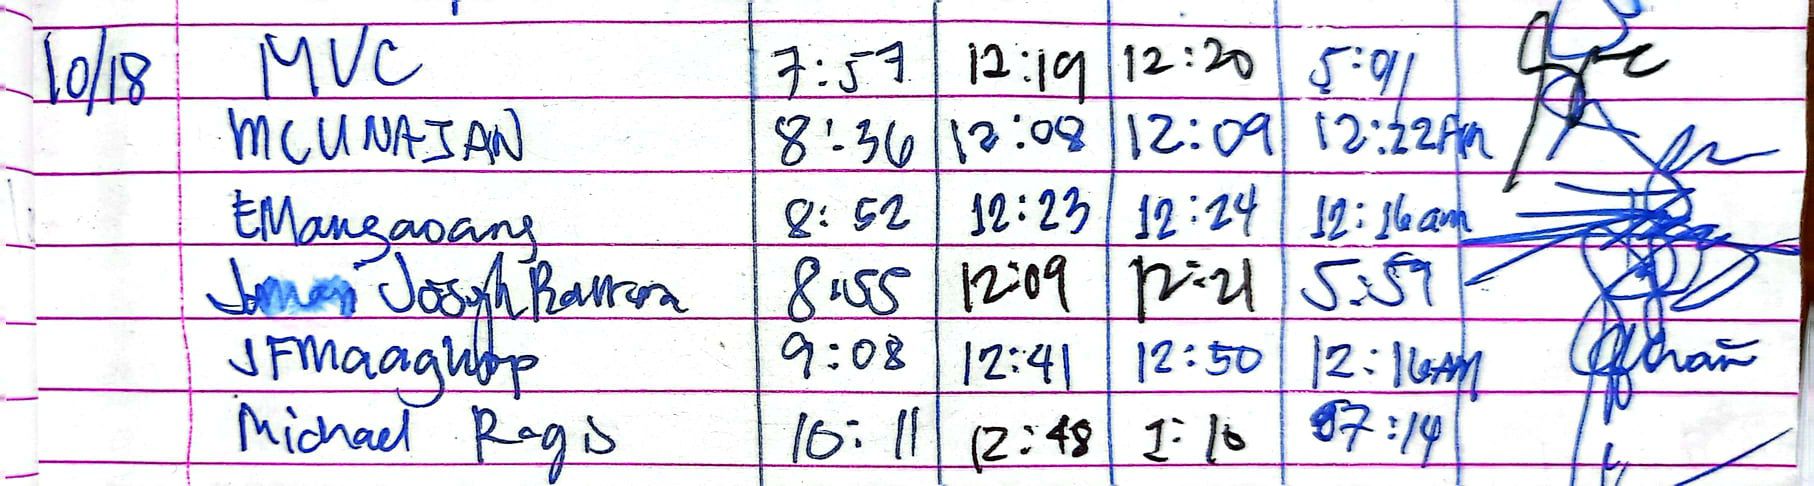 10/18 MVC 7:57 12:19 12:20 5:01
MCUNAJAN 8:36 12:08 12:09 12:22AM
EMangaoang 8:52 12:23 12:24 12:16am
Joseph 8:55 12:09 12:21 5:59
JFMaaghop 9:08 12:41 12:50 12:16AM
Michael Regis 10:11 12:48 1:10 07:14